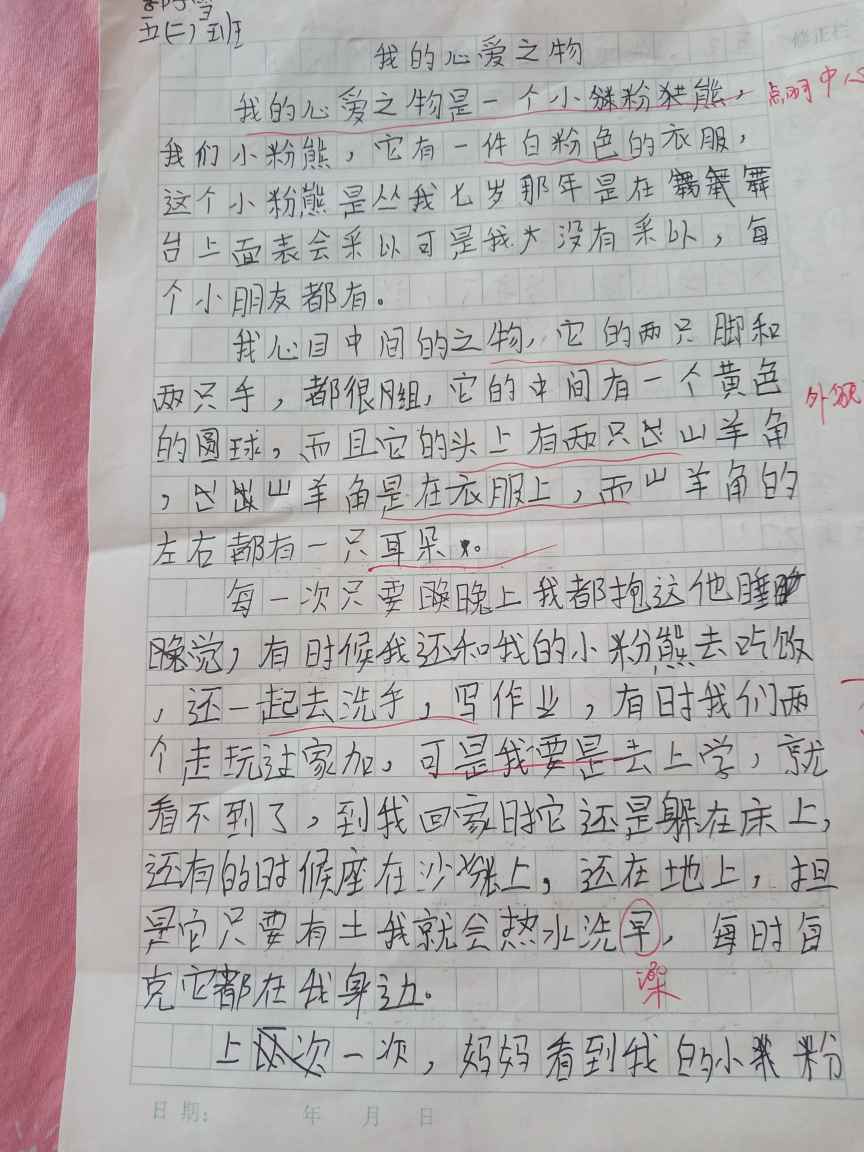 五(二)班
修正栏
我的心爱之物
我的心爱之物是一个小粉熊,
点明中心
我们小粉熊,它有一件白粉色的衣服,
这个小粉熊是丛我七岁那年是在舞
台上面表会采以可是我大没有采以,每
个小朋友都有。
我心目中间的之物,它的两只脚和
两只手,都很粗,它的中间有一个黄色
外貌
的圆球,而且它的头上有两只山羊角
,山羊角是在衣服上,而山羊角的
左右都有一只耳朵。
每一次只要晚上我都抱这他睡
觉,有时候我还和我的小粉熊去吃饭
,还一起去洗手,写作业,有时我们两
个走玩过家加,可是我要是去上学,就
看不到了,到我回家时它还是躲在床上,
还有的时候座在沙发上,还在地上,担
是它只要有土我就会热水洗早,每时每
澡
克它都在我身边。
上一次,妈妈看到我的小粉
日期: 年 月 日